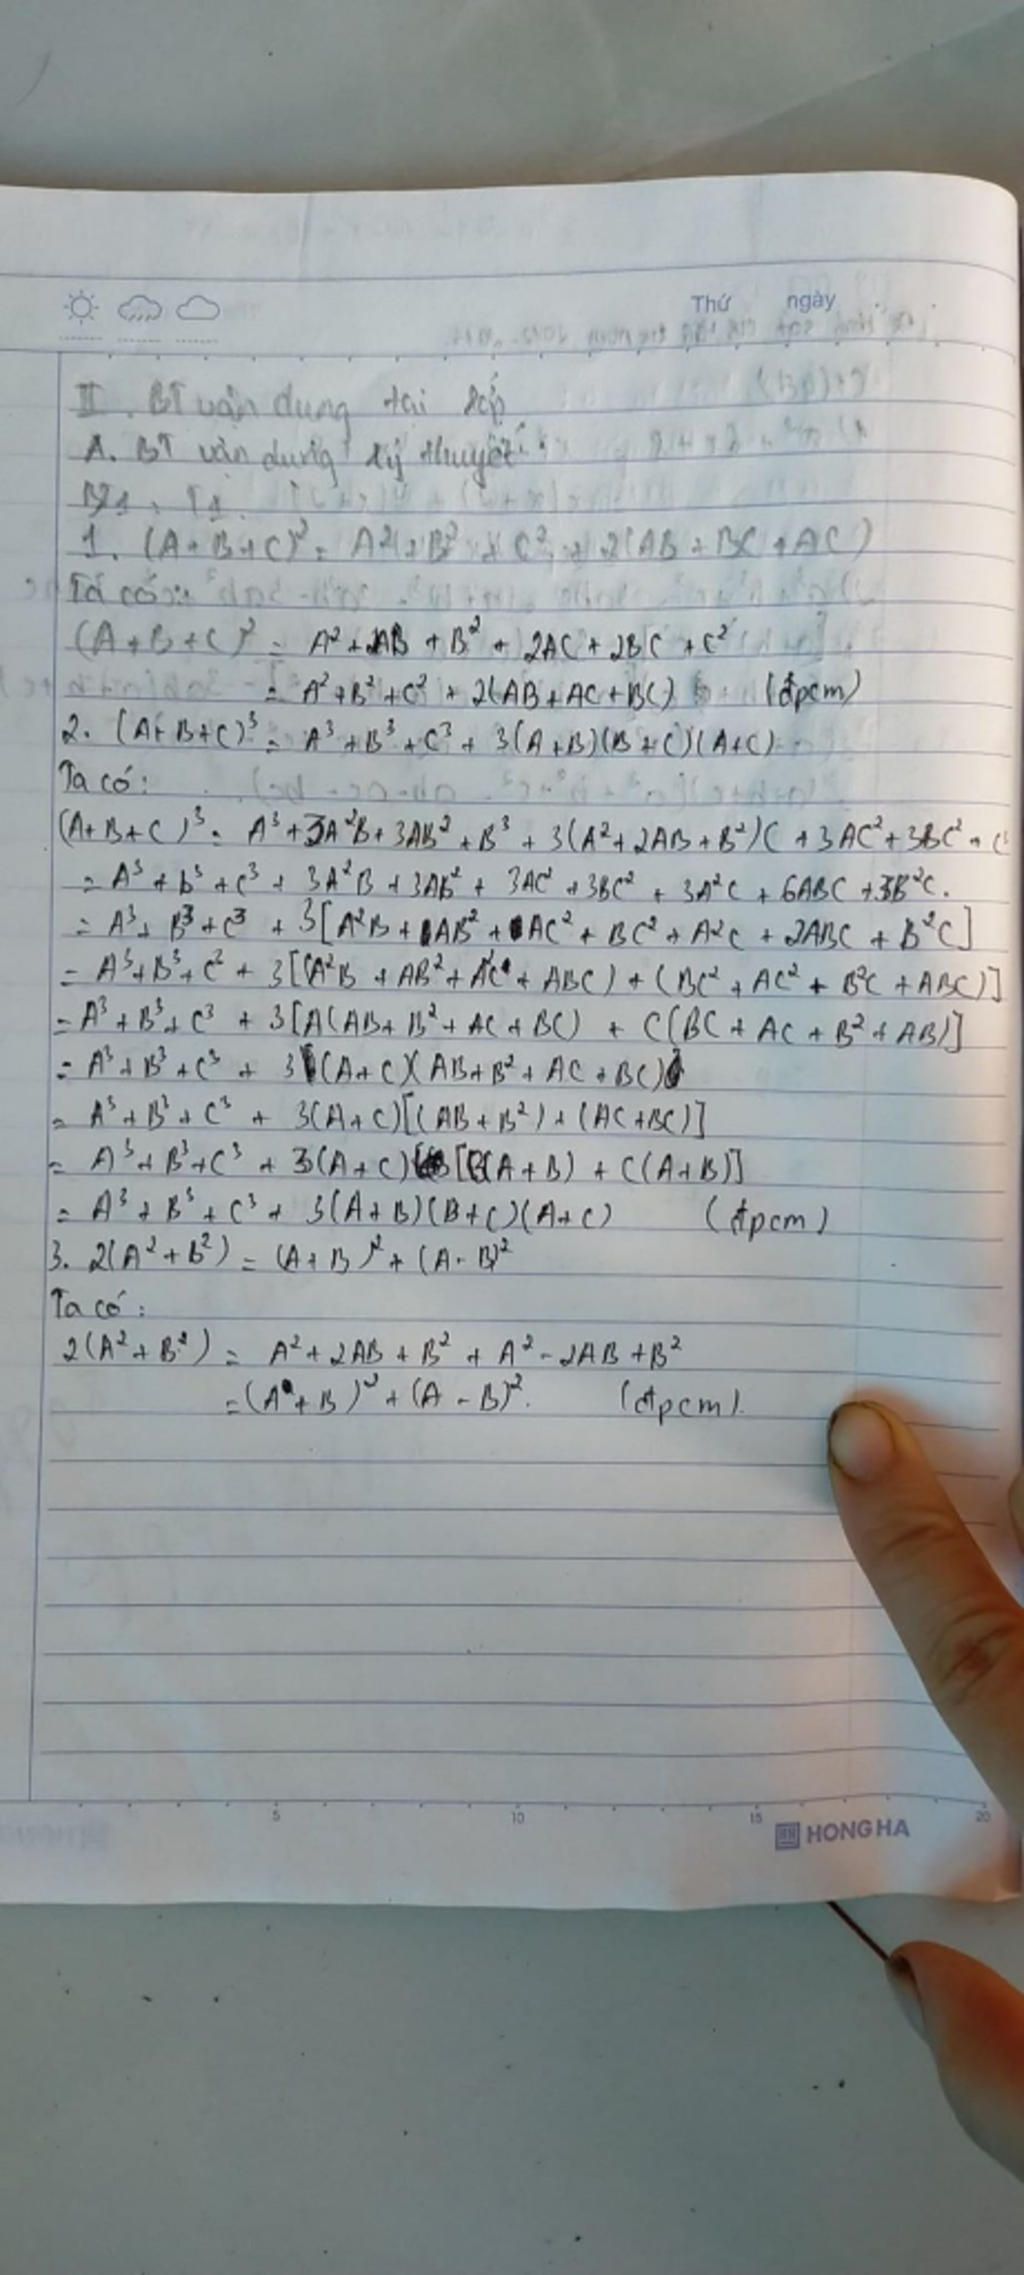 Thứ ngày
II. BT vận dụng tại lớp
A. BT vận dụng lý thuyết
1. (A+B+C)² = A²+B²+C²+2(AB+BC+AC)
Ta có:
(A+B+C)² = A²+2AB+B²+2AC+2BC+C²
= A²+B²+C²+2(AB+AC+BC) (đpcm)
2. (A+B+C)³ = A³+B³+C³+3(A+B)(B+C)(A+C)
Ta có:
(A+B+C)³ = A³+3A²B+3AB²+B³+3(A²+2AB+B²)C+3AC²+3BC²+C³
= A³+b³+c³+3A²B+3Ab²+3AC²+3BC²+3A²C+6ABC+3B²C.
= A³+B³+C³+3[A²B+AB²+AC²+BC²+A²C+2ABC+B²C]
= A³+B³+C²+3[(A²B+AB²+A²C+ABC)+(BC²+AC²+B²C+ABC)]
= A³+B³+C³+3[A(AB+B²+AC+BC)+C(BC+AC+B²+AB)]
= A³+B³+C³+3(A+C)(AB+B²+AC+BC)
= A³+B³+C³+3(A+C)[(AB+B²)+(AC+BC)]
= A³+B³+C³+3(A+C)[B(A+B)+C(A+B)]
= A³+B³+C³+3(A+B)(B+C)(A+C) (đpcm)
3. 2(A²+b²) = (A+B)²+(A-B)²
Ta có:
2(A²+B²) = A²+2AB+B²+A²-2AB+B²
= (A+B)²+(A-B)². (đpcm).
5 10 15 20
HONG HA